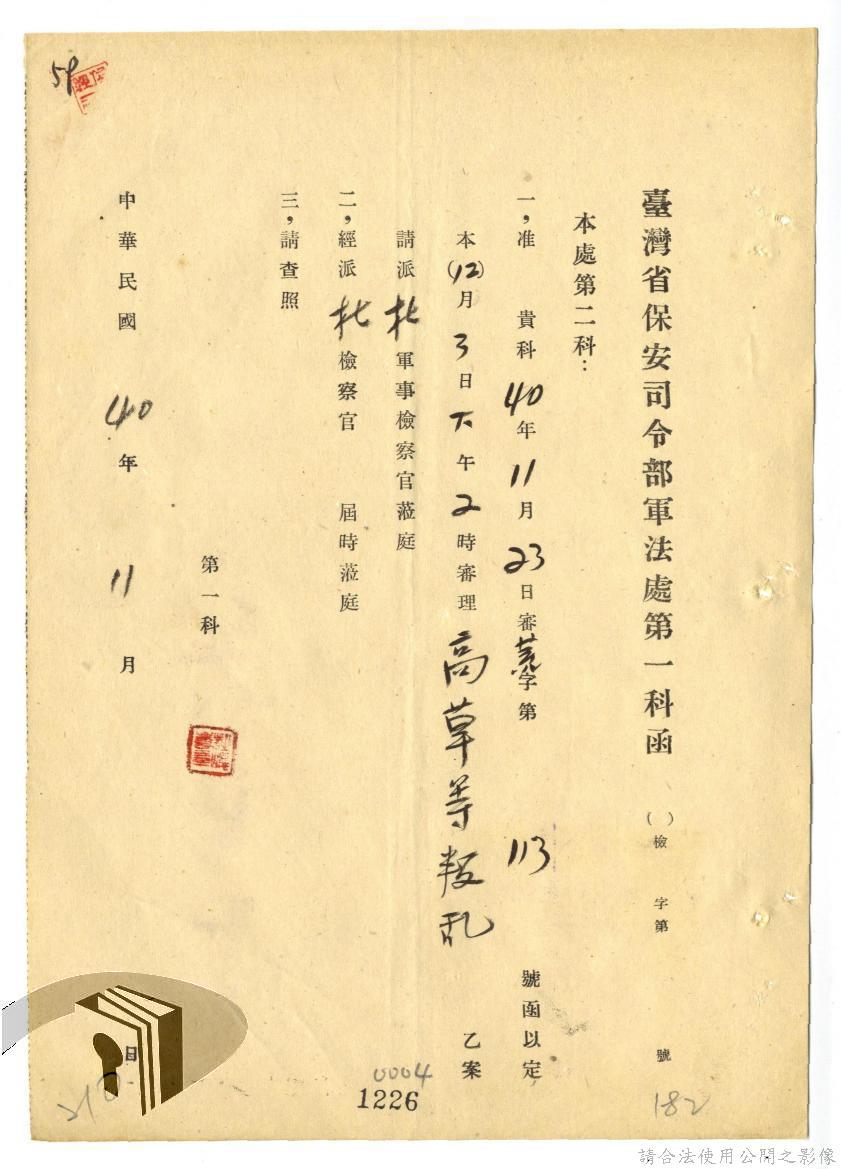 臺灣省保安司令部軍法處第一科函 ( )檢 字第 號
本處第二科：
一，准 貴科40年11月23日審字第 113 號函以定
本(12)月3日下午2時審理高草等叛乱 乙案
請派杜軍事檢察官蒞庭
二，經派杜檢察官 屆時蒞庭
三，請查照
第一科
中華民國 40年 11月 日
182
0004
1226
請合法使用公開之影像